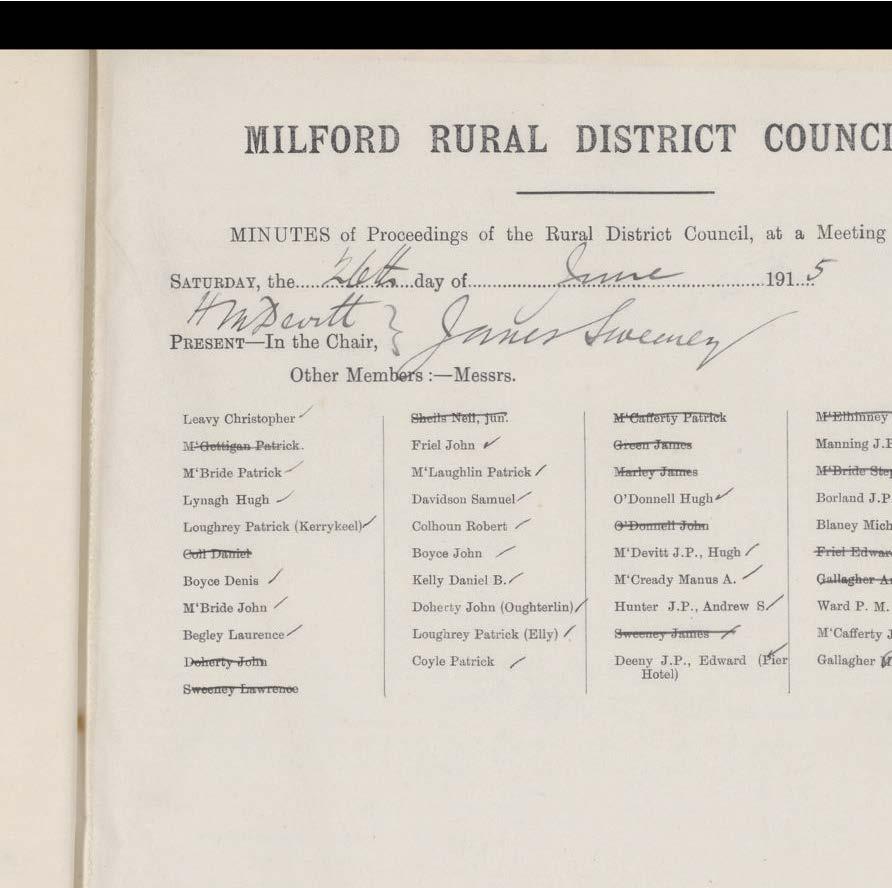 MILFORD RURAL DISTRICT COUNCI
MINUTES of Proceedings of the Rural District Council, at a Meeting
SATURDAY, the......26th...day of..........June..........191..5
H McDevitt
PRESENT—In the Chair, } James Sweeney
Other Members :—Messrs.
Leavy Christopher
M‘Gettigan Patrick.
M‘Bride Patrick
Lynagh Hugh
Loughrey Patrick (Kerrykeel)
Coll Daniel
Boyce Denis
M‘Bride John
Begley Laurence
Doherty John
Sweeney Lawrence
Sheils Neil, jun.
Friel John
M‘Laughlin Patrick
Davidson Samuel
Colhoun Robert
Boyce John
Kelly Daniel B.
Doherty John (Oughterlin)
Loughrey Patrick (Elly)
Coyle Patrick
M‘Cafferty Patrick
Green James
Marley James
O’Donnell Hugh
O’Donnell John
M‘Devitt J.P., Hugh
M‘Cready Manus A.
Hunter J.P., Andrew S.
Sweeney James
Deeny J.P., Edward (Pier
Hotel)
M‘Elhinney
Manning J.P
M‘Bride Step
Borland J.P.
Blaney Mich
Friel Edwar
Gallagher A
Ward P. M.
M‘Cafferty J
Gallagher